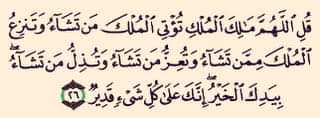 قُلِ ٱللَّهُمَّ مَٰلِكَ ٱلْمُلْكِ تُؤْتِي ٱلْمُلْكَ مَن تَشَآءُ وَتَنزِعُ
ٱلْمُلْكَ مِمَّن تَشَآءُ وَتُعِزُّ مَن تَشَآءُ وَتُذِلُّ مَن تَشَآءُۖ
بِيَدِكَ ٱلْخَيْرُۖ إِنَّكَ عَلَىٰ كُلِّ شَىْءٍۢ قَدِيرٌ ٢٦